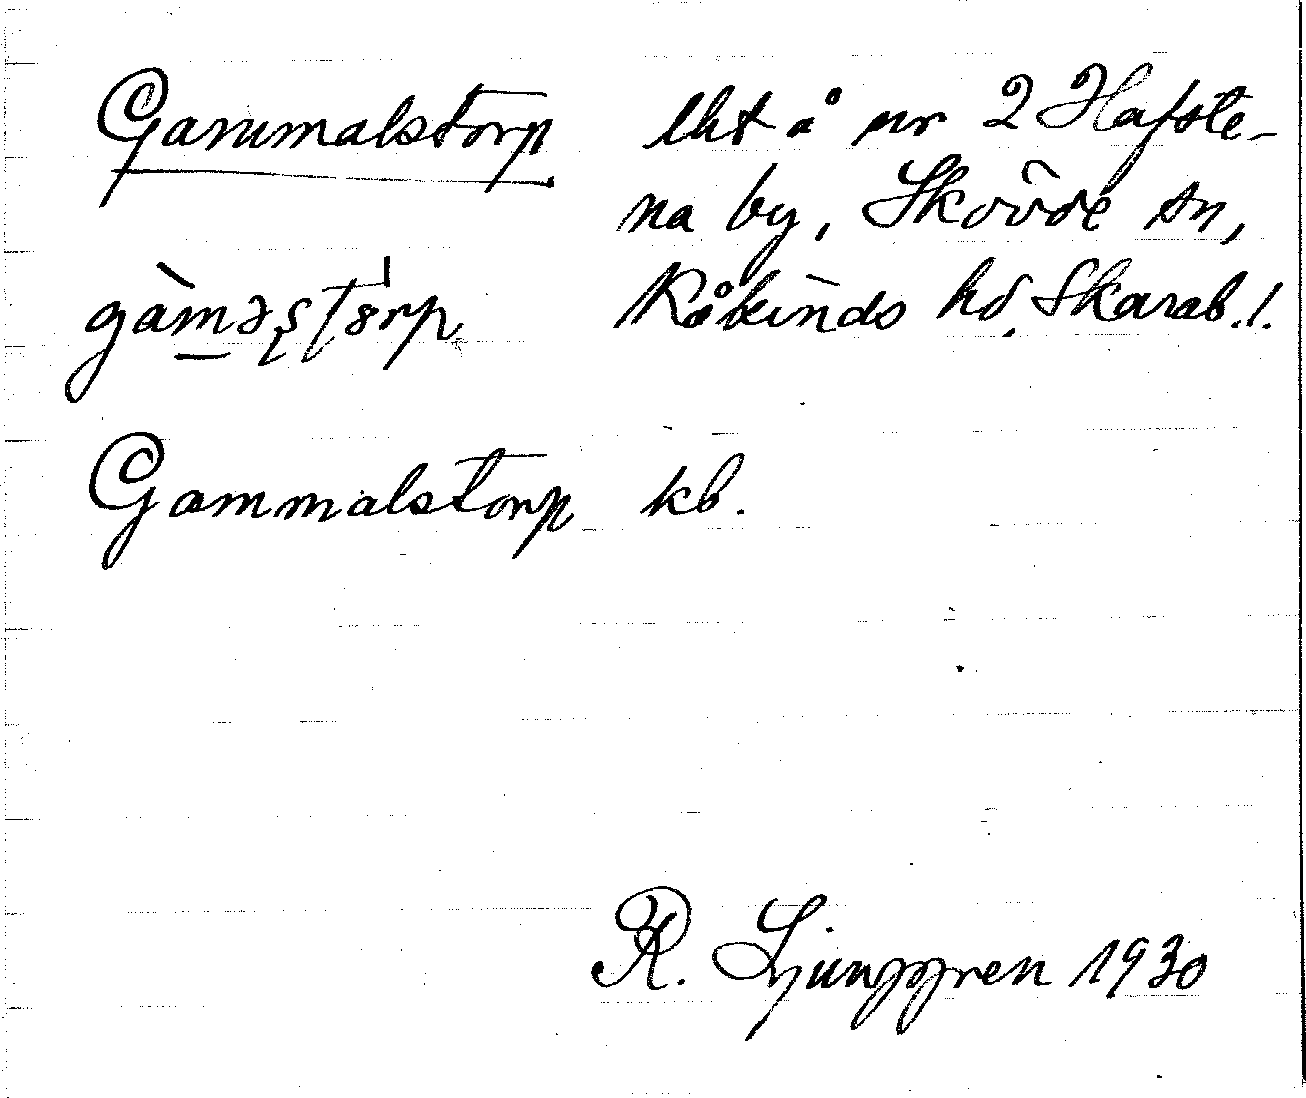 Gammalstorp lht å nr 2 Hafste-
na by, Skövde sn,
Kåkinds hd. Skarab. l.
Gammalstorp kb.
R. Ljunggren 1930